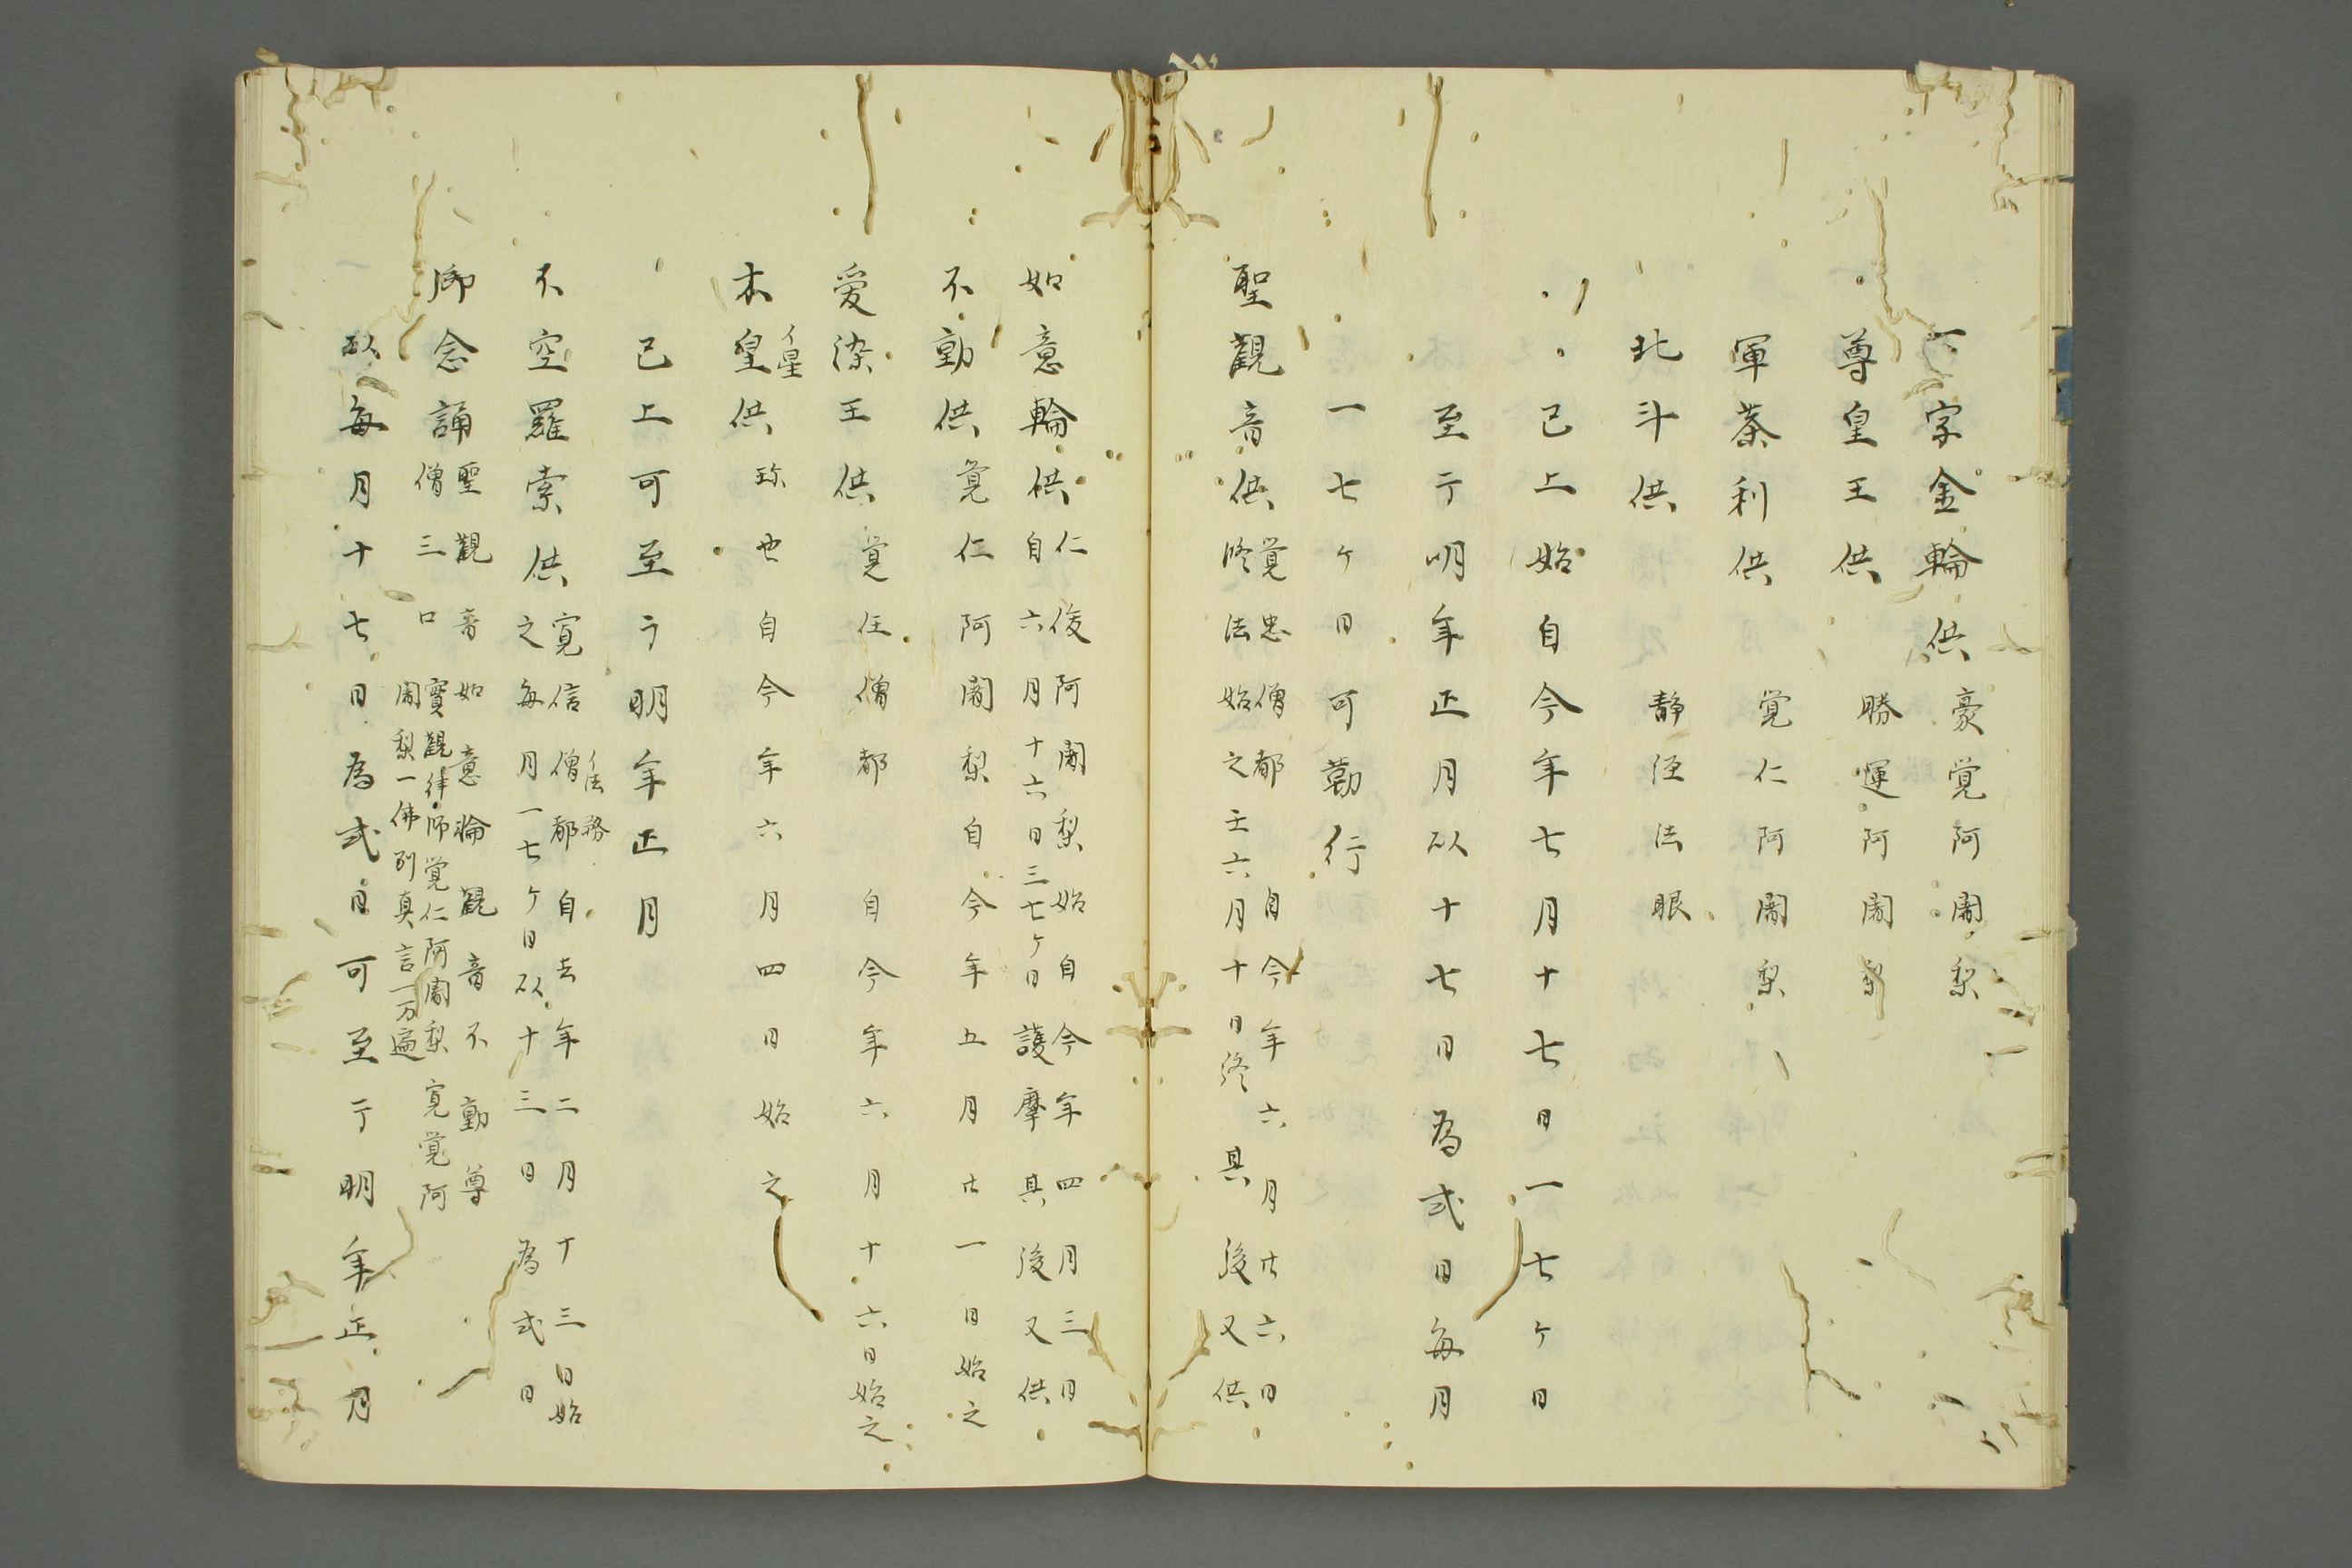 一字金輪供 豪覚阿闍梨
尊皇王供 勝運阿闍梨
軍荼利供 覚仁阿闍梨
北斗供 静経法眼
已上始自今年七月十七日一七ケ日
至于明年正月以十七日為式日毎月
一七ケ日可勤行
聖觀音供 覚忠僧都 自今年六月廿六日
修法始之 六月十日終 其後又供
如意輪供 仁俊阿闍梨 始自今年四月三日
自六月十六日三七ケ日護摩其後又供
不動供 覚仁阿闍梨 自今年五月廿一日始之
愛染王供 覚任僧都 自今年六月十六日始之
本皇供 珎也 自今年六月四日始之
イ星
已上可至于明年正月
不空羅索供 寛信僧都 自去年二月十三日始
法務
之毎月一七ケ日以十三日為式日
御念誦 聖觀音如意輪觀音不動尊
僧三口 實觀律師覚仁阿闍梨寛覚阿
闍梨一佛別真言一万遍
以毎月十七日為式日可至于明年正月